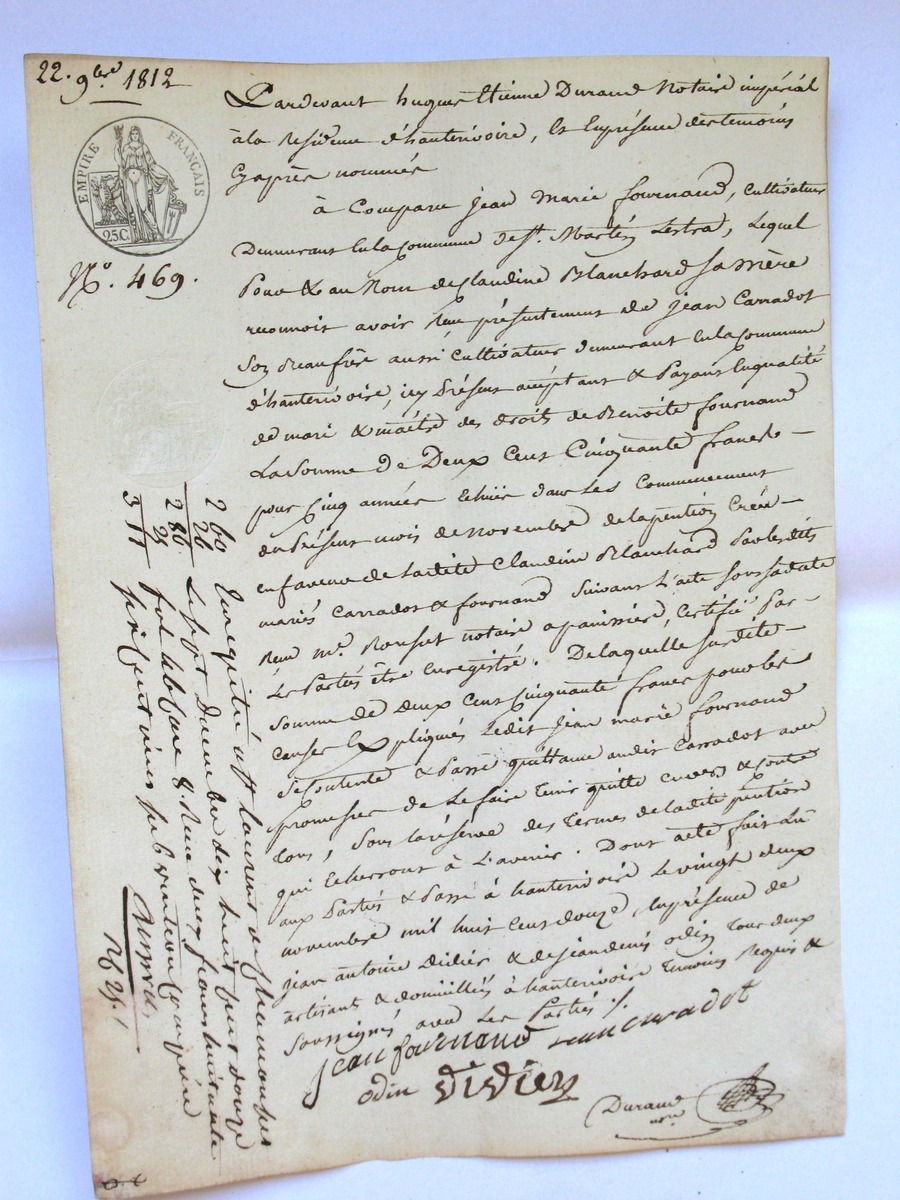 22. 9bre 1812
EMPIRE FRANÇAIS
25.C.
No. 469.
Pardevant hugues Etienne Durand Notaire impérial
à la Residence d'hauterivoire, & En présence des temoins
Cy après nommés
à Comparu Jean Marie fournand, Cultivateur
Demeurant En la Commune de St. Martin Lestra, Lequel
Pour & au Nom de Claudine Blanchard Sa Mère
reconnoit avoir Reçu présentement de Jean Carradot
Son Beaufrère aussi Cultivateur demeurant En la Commune
d'hauterivoire, icy Présent acceptant & Payant En qualité
de mari & maitre des droits de Benoite fournand
La Somme de Deux Cent Cinquante francs
pour Cinq années Echües dans Les Commencement
du Présent mois de Novembre de la pention Créée
en faveur de Ladite Claudine Blanchard Par lesdits
mariés Carradot & fournand Suivant L'acte Sous Sa date
Reçu Me. Rousset notaire a panissière, Certifié Par
Les Parties être Enregistré. De laquelle Susdite
Somme de deux Cent Cinquante francs pour les
Causes Expliquées Ledit Jean marie fournand
Se Contente & Passe quittance audit Carradot avec
promesse de Le faire tenir quitte Envers & Contre
tous, Sous la réserve des termes de ladite pention
qui Echerront à L'avenir. Dont acte fait Lu
aux Parties & Passé à hauterivoire Le vingt deux
novembre mil huit Cent douze, En présence de
Jean antoine Didier & de Jean denis odin tous deux
artisans & domiciliés à hauterivoire temoins Requis &
Soussignés avec Les Parties ./.
Jean fournand Jean Caradot
odin didier
Durand
nore
Enregistré à St Laurent de Chamousset
Le Sept Décembre dix huit cent douze
fol. Case 8. Reçu deux francs quatre
vingt
2 60
26
2 86
25
3 11